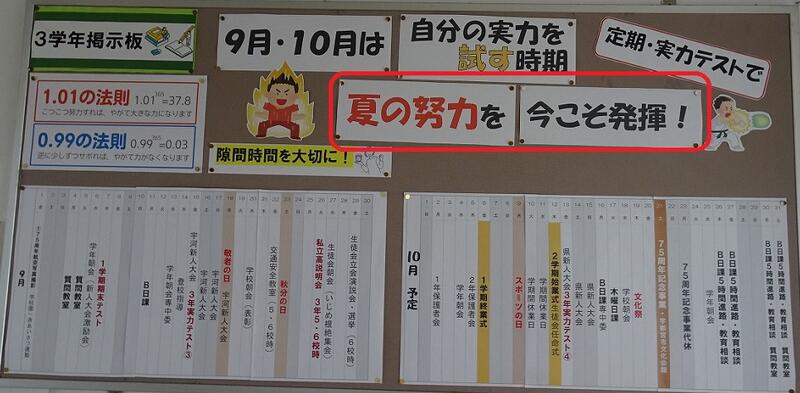 3学年掲示板
9月・10月は
自分の実力を
試す時期
定期・実力テストで
1.01の法則 1.01^365=37.8
こつこつ努力すれば、やがて大きな力になります
0.99の法則 0.99^365=0.03
逆に少しずつサボれば、やがて力がなくなります
夏の努力を
今こそ発揮！
隙間時間を大切に！
9月
質問教室
学年朝会(新人大会激励会)
質問教室
1学期期末テスト
B日課
学年朝会 専中委
登校指導
宇河新人大会 3年実力テスト③
宇河新人大会
宇河新人大会
敬老の日 宇河新人大会
学校朝会(表彰)
交通安全教室(5・6校時)
秋分の日
私立高説明会 3年5、6校時
生徒会朝会(いじめ根絶集会)
生徒会立会演説会・選挙(6校時)
10月 予定
1年保護者会
学年朝会
2年保護者会
1学期終業式
スポーツの日
学期間休業日
学期間休業日
2学期始業式 生徒会任命式
県新人大会 3年実力テスト④
県新人大会
県新人大会
B日課 専中委
木曜日課
学校朝会
文化祭
75周年記念事業・宇都宮市文化会館
75周年記念事業代休
学年朝会
B日課5時間進路・教育相談
B日課5時間進路・教育相談
B日課5時間進路・教育相談 質問教室
B日課5時間進路・教育相談 質問教室